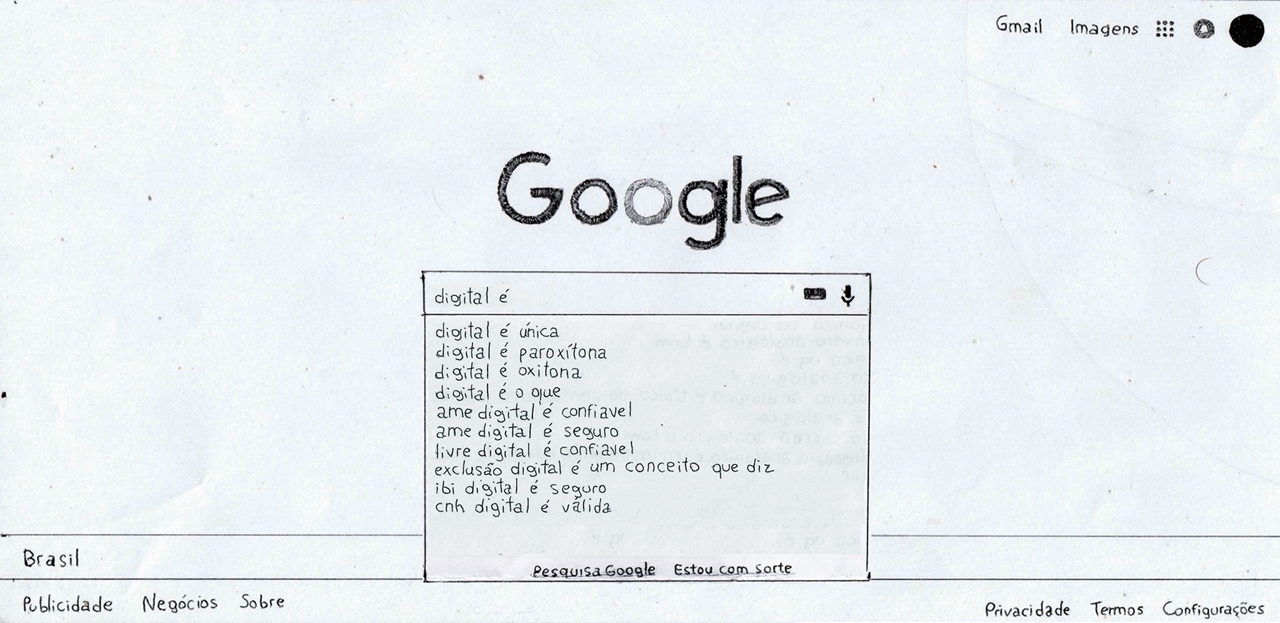 Gmail Imagens
Google
digital é
digital é única
digital é paroxítona
digital é oxitona
digital é o que
ame digital é confiavel
ame digital é seguro
livre digital é confiavel
exclusão digital é um conceito que diz
ibi digital é seguro
cnh digital é válida
Pesquisa Google Estou com Sorte
Brasil
Publicidade Negócios Sobre
Privacidade Termos Configurações